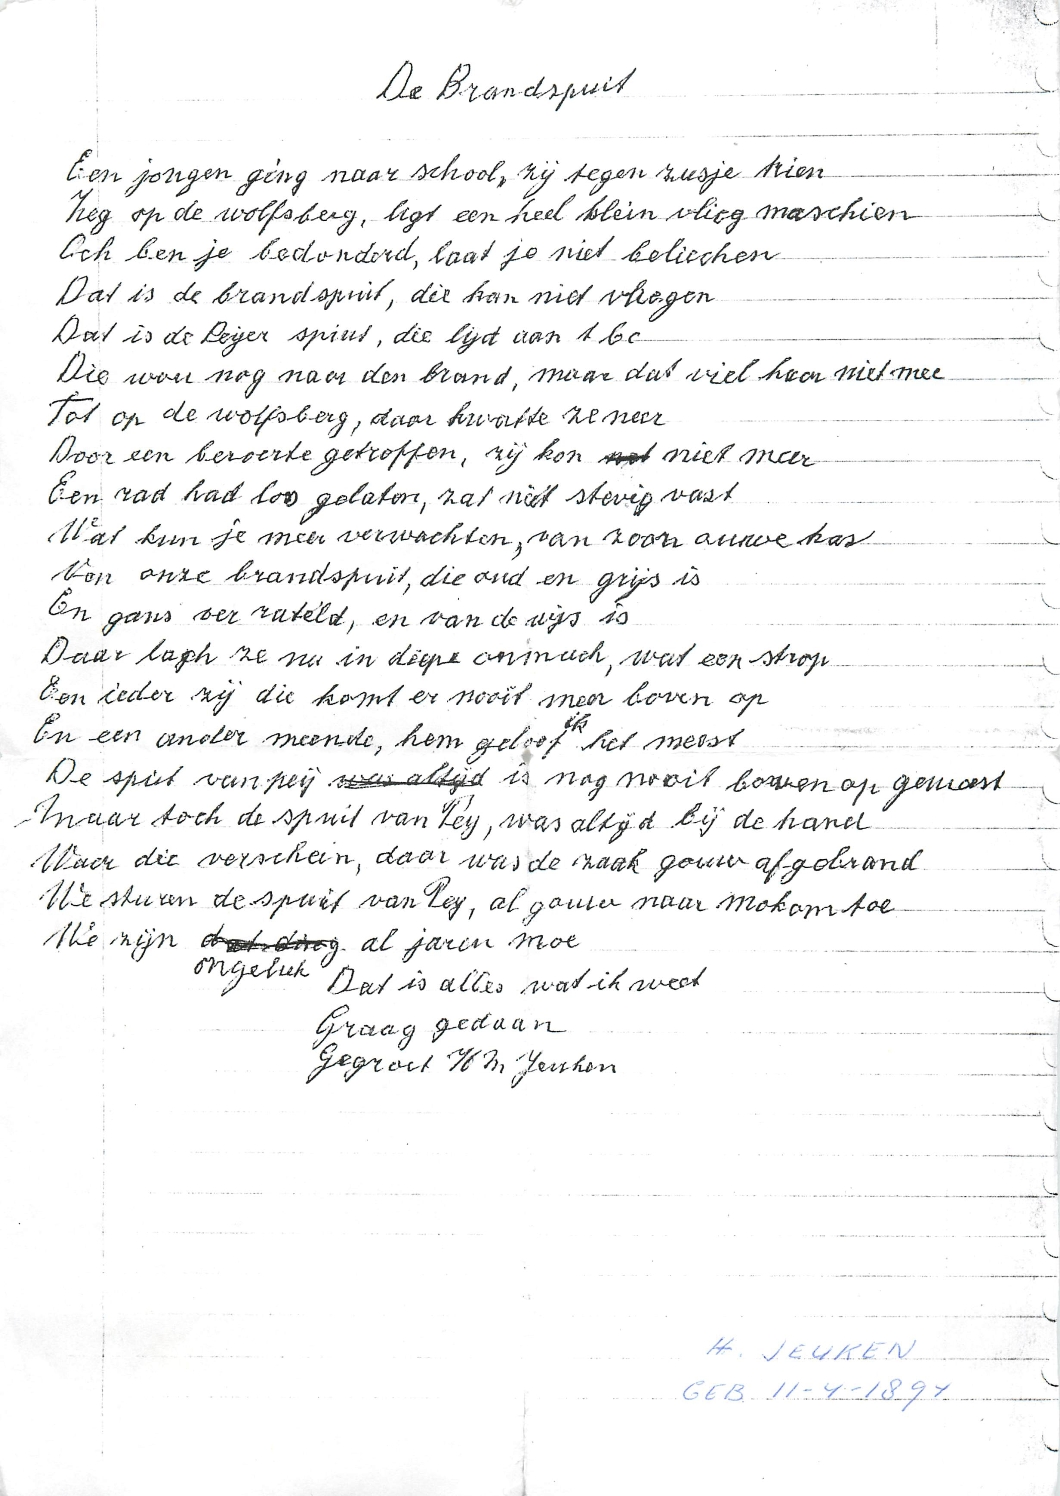 De Brandspuit
Een jongen ging naar school, zij tegen zusje trien
Zeg op de wolfsberg, ligt een heel klein vlieg maschien
Och ben je bedonderd, laat je niet beliechen
Dat is de brandspuit, die kan niet vliegen
Dat is de Peijer spuit, die lijd aan t bc
Die wou nog naar den brand, maar dat viel haar niet mee
Tot op de wolfsberg, daar kwatte ze neer
Door een beroerte getroffen, zij kon niet meer
Een rad had los gelaten, zat niet stevig vast
Wat kun je meer verwachten, van zoon ouwe kas
Van onze brandspuit, die oud en grijs is
En gans ver rateld, en van de wijs is
Daar lagh ze nu in diepe onmach, wat een strop
Een ieder zij die komt er nooit meer boven op
En een ander meende, hem geloof ik het meest
De spuit van peij was altijd is nog nooit boven op geweest
maar toch de spuit van Pey, was altijd bij de hand
Waar die verschein, daar was de zaak gouw afgebrand
We sturen de spuit van Pey, al gouw naar Mokom toe
We zijn dat ding al jaren moe
ongeluk
Dat is alles wat ik weet
Graag gedaan
Gegroet H M Jeuken
H. JEUKEN
GEB 11-4-1897